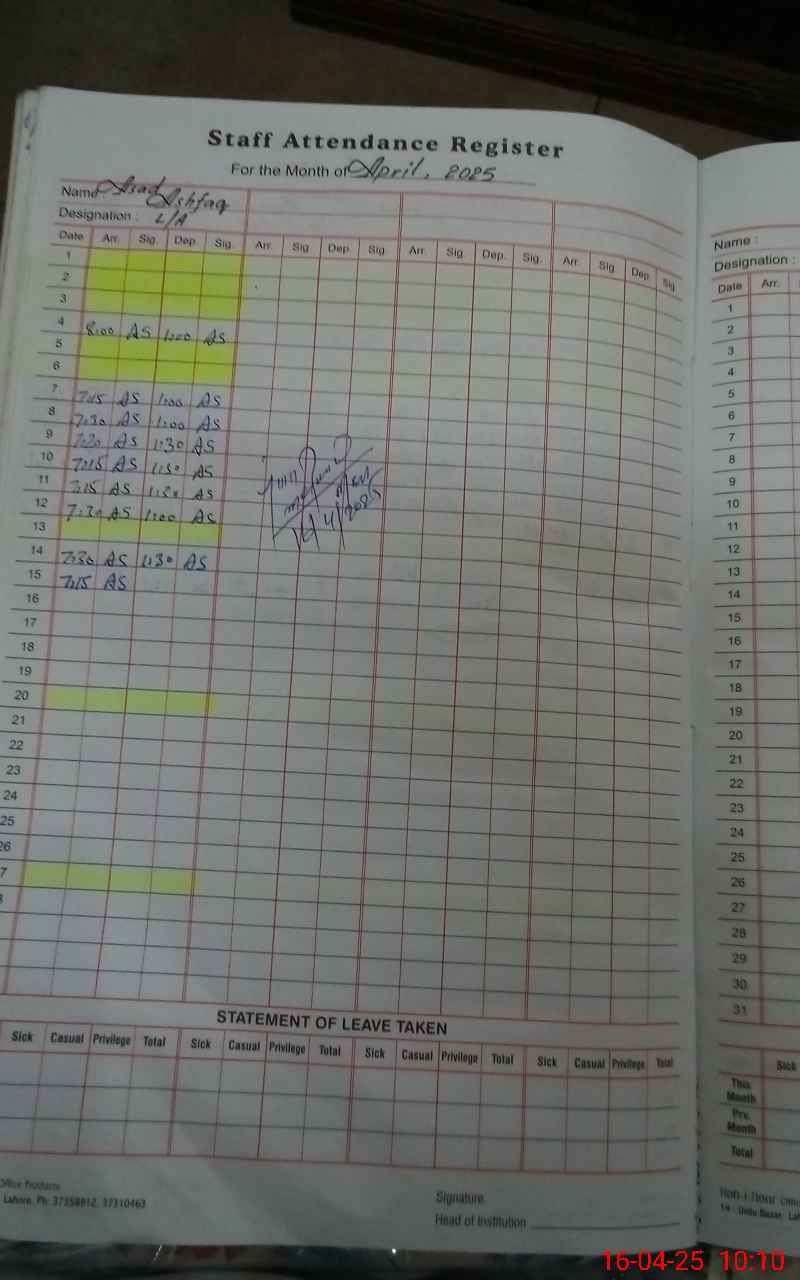 Staff Attendance Register
For the Month of April, 2025
Name: Asad Ashfaq
Designation : L/A
Date Arr. Sig. Dep. Sig. Arr. Sig. Dep. Sig. Arr. Sig. Dep. Sig. Arr. Sig. Dep. Sig.
1
2
3
4 8:00 AS AS
5
6
7 7:15 AS 1:00 AS
8 7:30 AS 1:00 AS
9 7:20 AS 1:30 AS
10 7:15 AS 1:30 AS
11 AS 1:30 AS
12 7:30 AS 1:00 AS
13
14 7:30 AS 1:30 AS
15 7:15 AS
16
17
18
19
20
21
22
23
24
25
26
7
STATEMENT OF LEAVE TAKEN
Sick Casual Privilege Total Sick Casual Privilege Total Sick Casual Privilege Total Sick Casual Privilege Total
Office Products
Lahore. Ph: 37358812, 37310463
Signature
Head of Institution
Name :
Designation :
Date Arr.
1
2
3
4
5
6
7
8
9
10
11
12
13
14
15
16
17
18
19
20
21
22
23
24
25
26
27
28
29
30
31
Sick
This Month
Prv. Month
Total
16-04-25 10:10